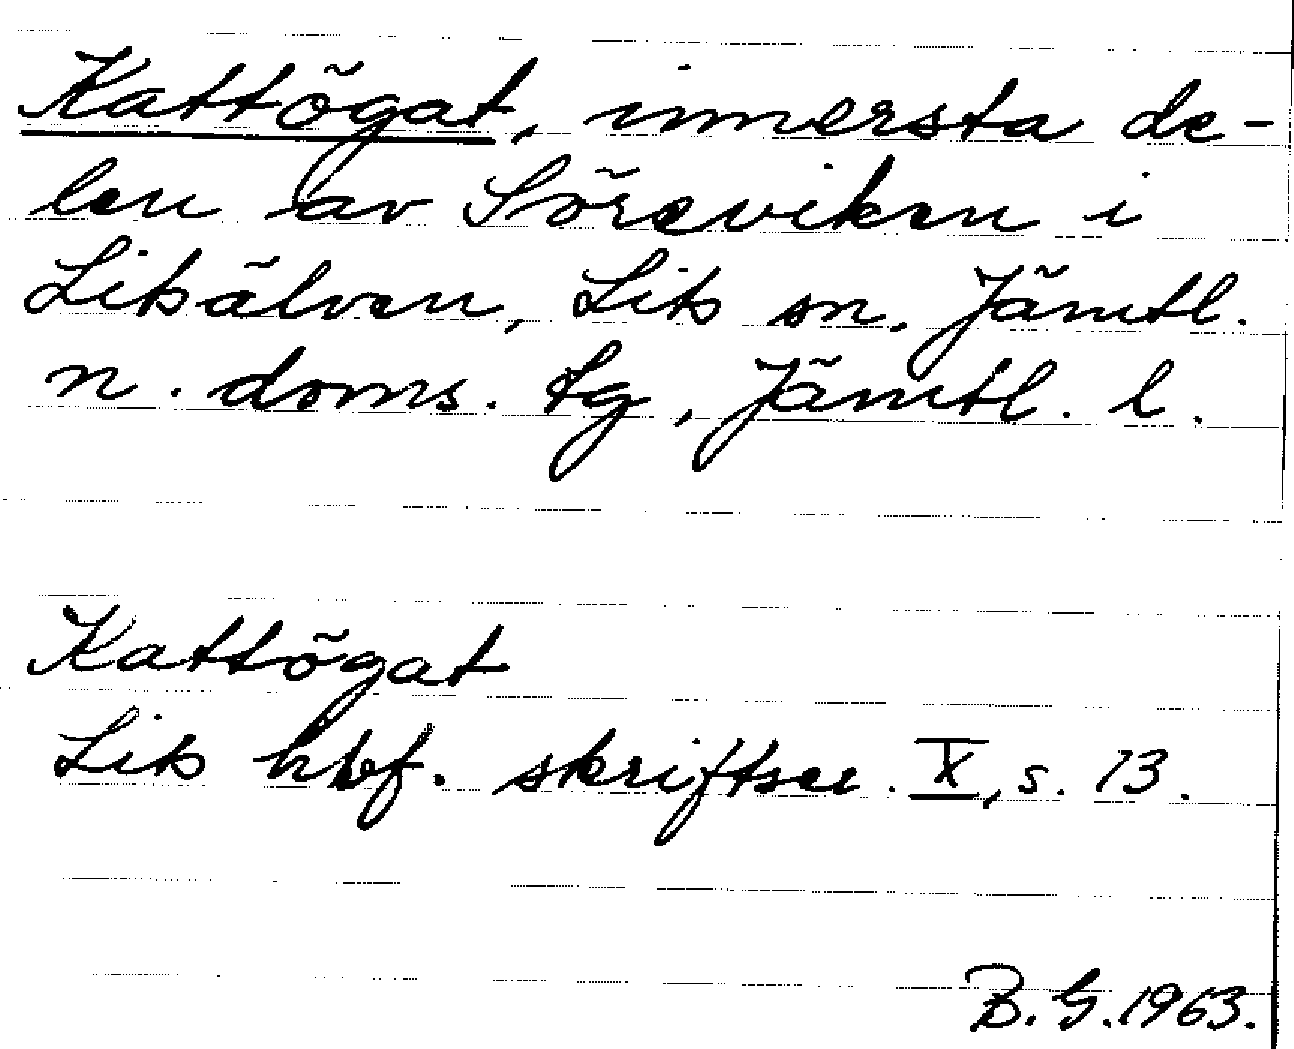 Kattögat, innersta de-
len av Söreviken i
Litsälven, Lits sn, Jämtl.
n. doms. tg, Jämtl. l.
Kattögat
Lits hbf. skriftser. X, s. 13.
B. G. 1963.